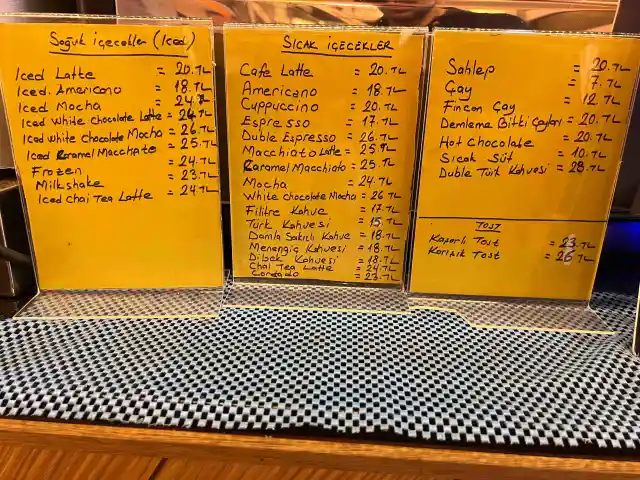 Soğuk içecekler (Iced)
Iced Latte = 20.TL
Iced. Americano = 18.TL
Iced Mocha = 24.TL
Iced White Chocolate Latte = 24TL
Iced White Chocolate Mocha = 26TL
Iced Caramel Macchiato = 25.TL
Frozen = 24.TL
Milkshake = 23.TL
Iced Chai Tea Latte = 24.TL
SICAK İÇECEKLER
Cafe Latte = 20.TL
Americano = 18.TL
Cappuccino = 20.TL
Espresso = 17.TL
Duble Espresso = 26.TL
Macchiato Latte = 25.TL
Caramel Macchiato = 25.TL
Mocha = 24.TL
White Chocolate Mocha = 26 TL
Filitre Kahve = 17.TL
Türk Kahvesi = 15.TL
Damla Sakızlı Kahve = 18.TL
Menengiç Kahvesi = 18.TL
Dibek Kahvesi = 18.TL
Chai Tea Latte = 24TL
Cordado = 23.TL
Sahlep = 20.TL
Çay = 7.TL
Fincan Çay = 12 TL
Demleme Bitki Çayları = 20.TL
Hot Chocolate = 20.TL
Sıcak Süt = 10.TL
Duble Türk Kahvesi = 28.TL
TOST
Kaşarlı Tost = 23.TL
Karışık Tost = 26.TL